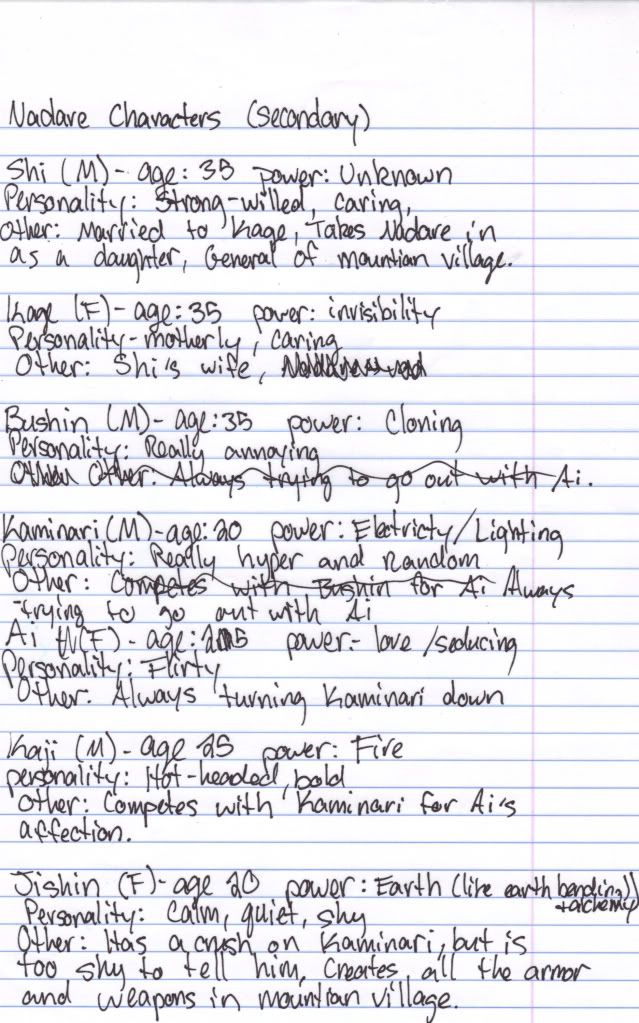 Nadare Characters (secondary)
Shi (M) - age: 35 power: Unknown
Personality: Strong-willed, caring,
Other: Married to Kage, Takes Nadare in
as a daughter, General of mountian village.
Kage (F) - age: 35 power: invisibility
Personality - motherly, caring
Other: Shi's wife,
Bushin (M) - age: 35 power: Cloning
Personality: Really annoying
Other: Always trying to go out with Ai.
Kaminari (M) - age: 20 power: Electricty/Lighting
Personality: Really hyper and random
Other: Competes with Bushin for Ai Always
trying to go out with Ai
Ai (F) - age: 25 power: - love /seducing
Personality: Flirty
Other: Always turning Kaminari down
Kaji (M) - age 25 power: Fire
personality: Hot-headed, bold
Other: Competes with Kaminari for Ai's
affection.
Jishin (F) - age 20 power: Earth (like earth bending))
+alchemy
Personality: Calm, quiet, shy
Other: Has a crush on Kaminari, but is
too shy to tell him, Creates all the armor
and weapons in mountian village.